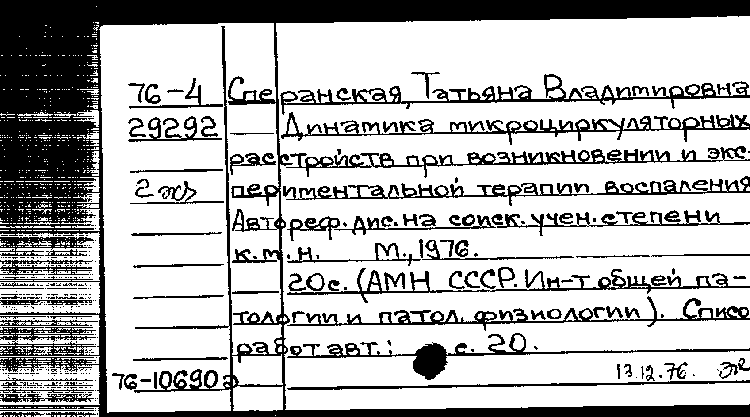 76-4 Сперанская, Татьяна Владимировна
29292 Динамика микроциркуляторных
расстройств при возникновении и экс-
2 экз периментальной терапии воспаления
Автореф. дис. на соиск. учен. степени
к.м.н. М., 1976.
20с. (АМН СССР. Ин-т общей па-
тологии и патол. физиологии). Списо
работ авт.: с. 20.
76-10690 13.12.76.